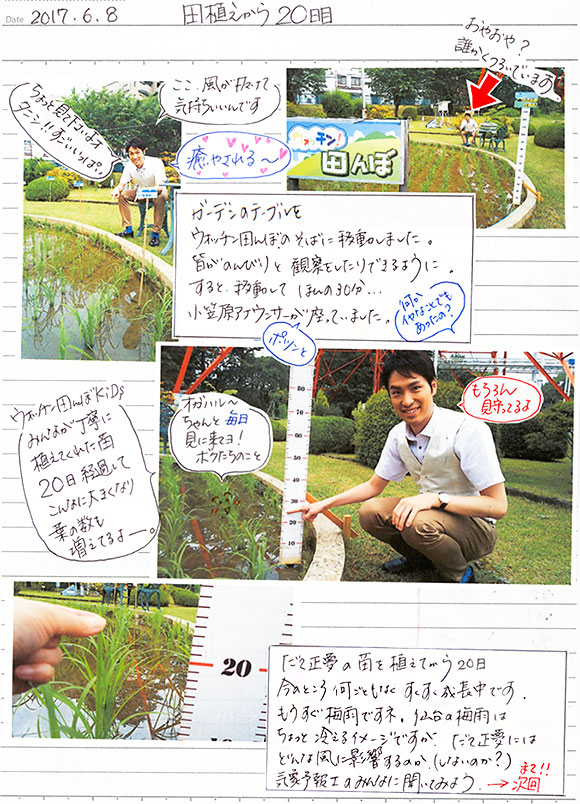 Date 2017.6.8
田植えから20日目
おやおや?
誰かくつろいでいます
ちょっと見て下さいよオ
ケーシィ!!すごいいっぱい。
ここ、風がぬけて
気持ちいいんです
癒やされる〜
チン!
田んぼ
ガーデンのテーブルを
ウォッチン田んぼのそばに移動しました。
皆がのんびりと観察をしたりできるように。
すると、移動して ほんの30分…
小笠原アナウンサーが座っていました。
何か
イヤなことでも
あったの?
ポツンと
オガハル〜
ちゃんと毎日
見に来てヨ!
ボクたちのこと
もちろん
見守ってるよ
ウォッチン田んぼKiDs
みんなが丁寧に
植えてくれた苗
20日経過して
こんなに大きくなり
葉の数も
増えてるよー。
80
70
60
50
40
30
20
10
20
10
だて正夢の苗を植えてから20日
今のところ何ごともなくすくすく成長中です。
もうすぐ梅雨ですネ。仙台の梅雨は
ちょっと冷えるイメージですが、だて正夢には
どんな風に影響するのか(しないのか?)
気象予報士のみんなに聞いてみよう。
まて!!
→次回